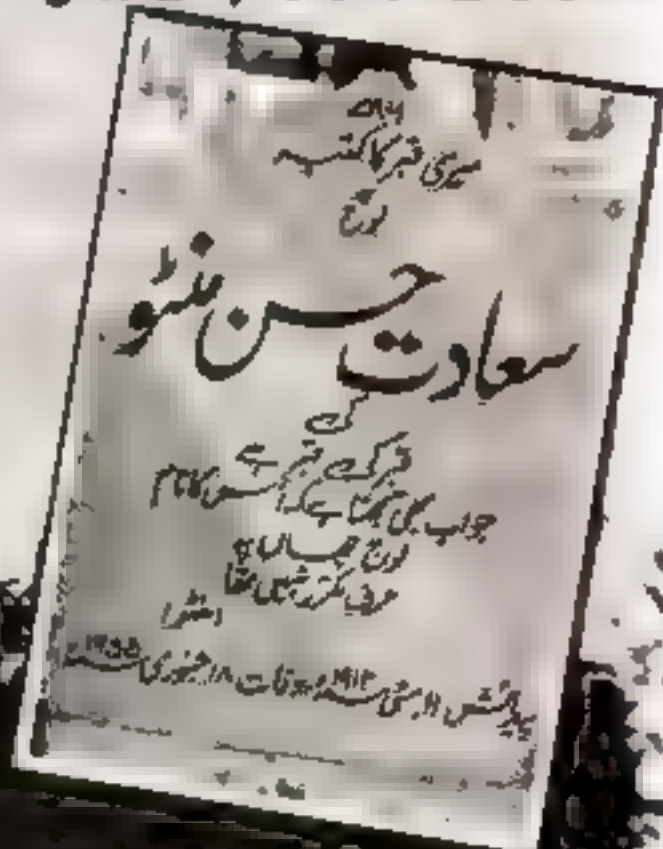 ۷۸۶
میری قبر کا کتبہ
لوح
سعادت حسن منٹو
کی
قبر کی قبر ہے
جو اب بھی سمجھتا ہے کہ اس کا نام
لوح جہاں پہ
حرف مکرر نہیں تھا
منٹو
پیدائش ۱۱ مئی ۱۹۱۲ء وفات ۱۸ جنوری ۱۹۵۵ء